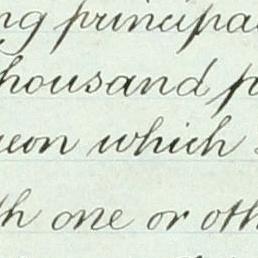 ng principa
housand p
eon which
th one or oth